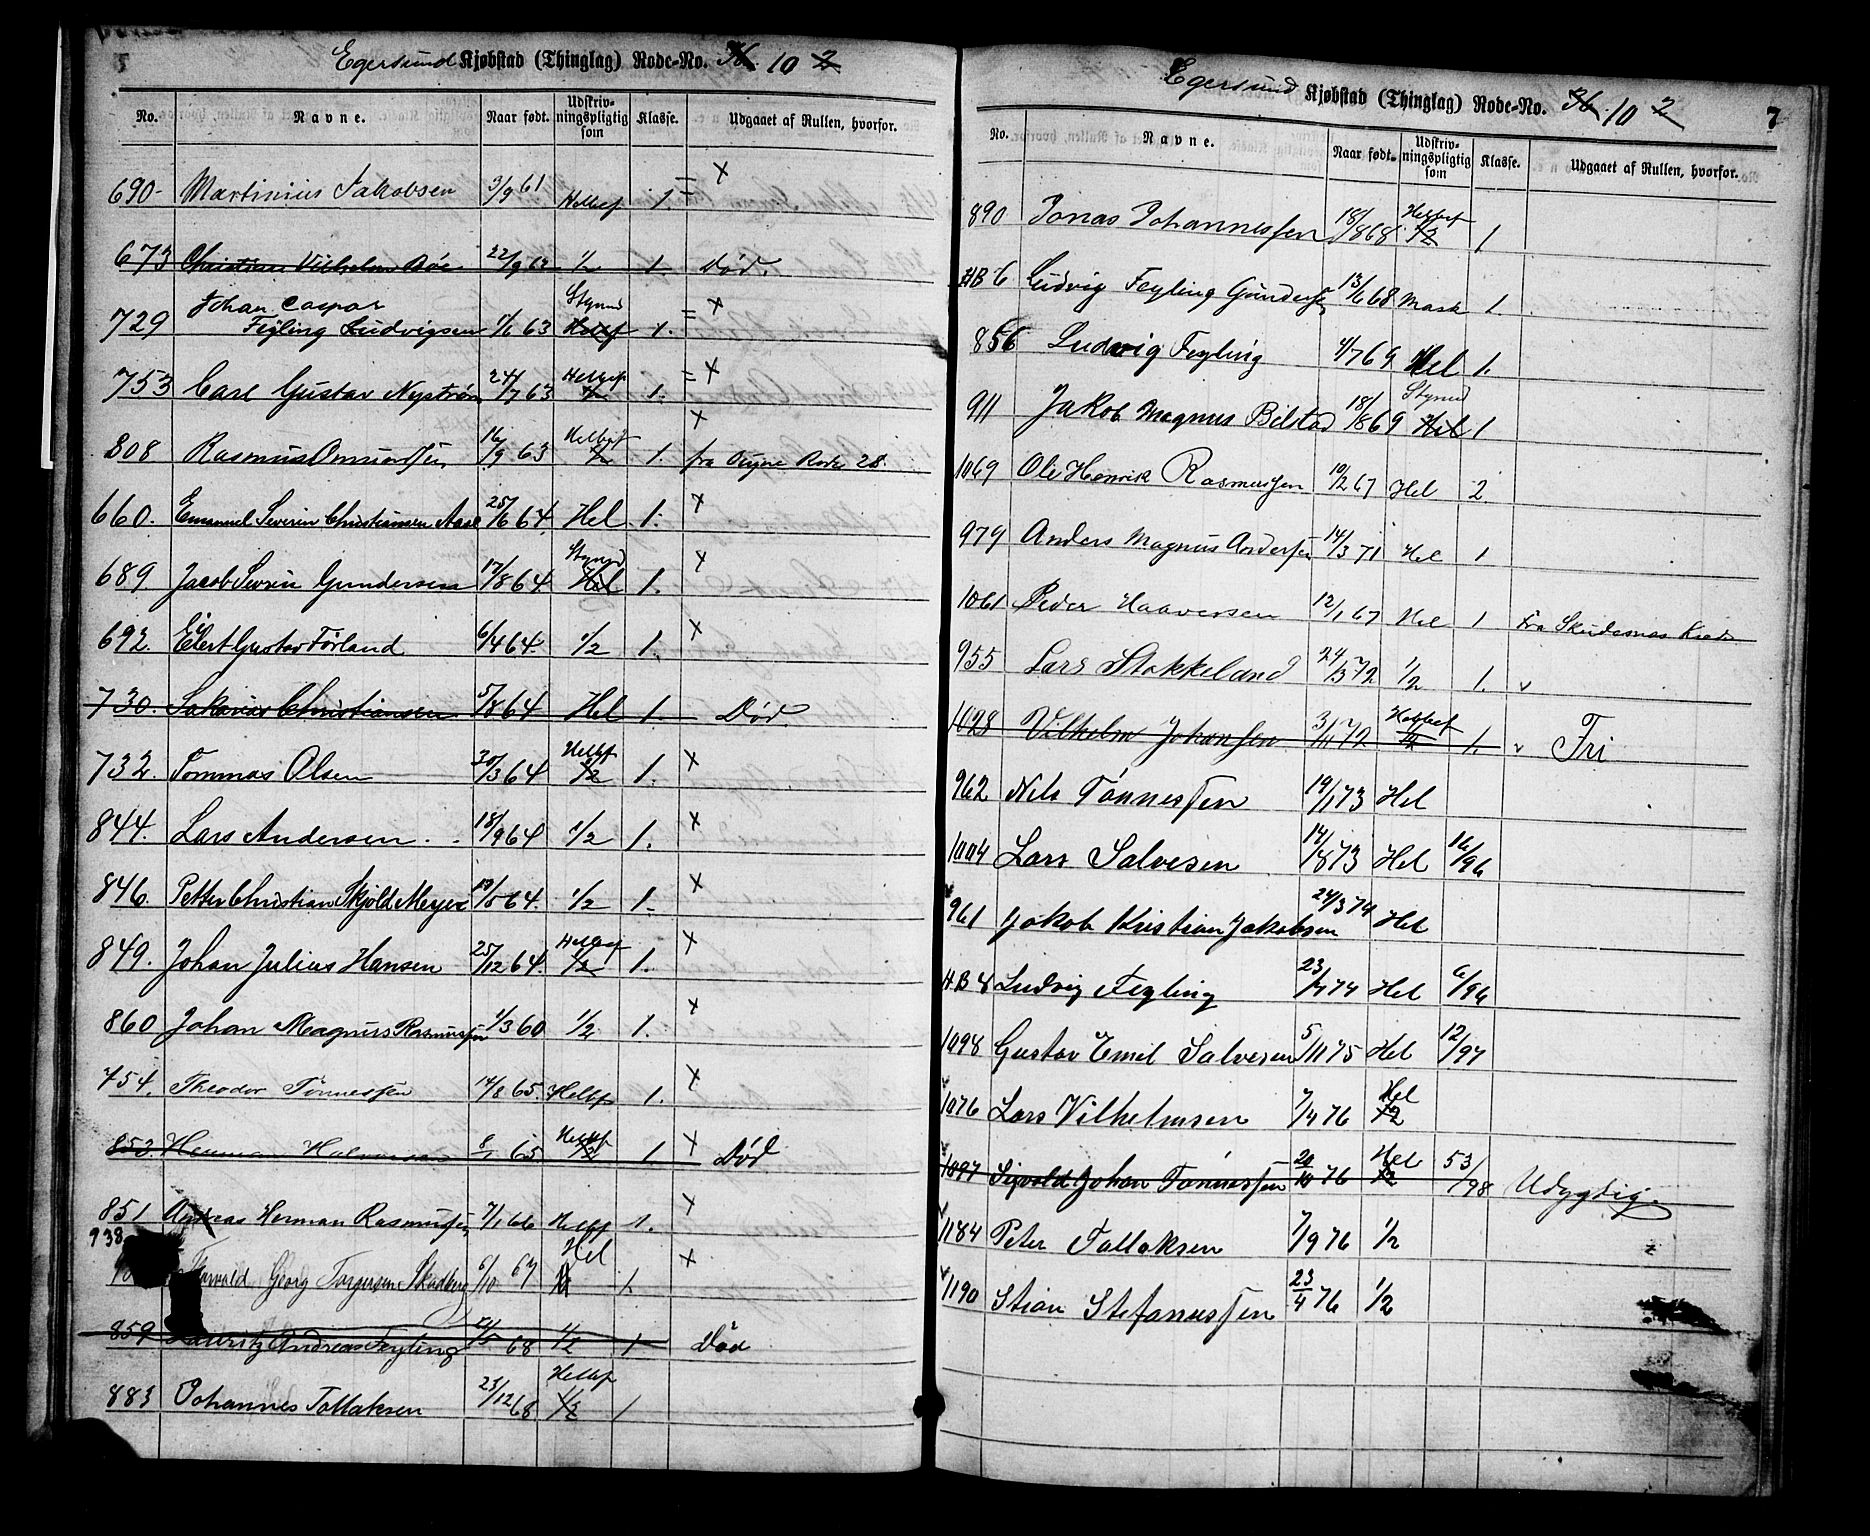 Egersund Kjøbstad (Thinglag) Rode-No. 36 10 2
No. Navne. Naar født. Udskrivningspligtig som Klasse. Udgaaet af Rullen, hvorfor.
690 Martinius Jakobsen 3/9 61 Helbef 1. = X
673 Christian Vilhelm Bøe 22/9 62 1/2 1. Død.
729 Johan Caspar Feyling Ludvigsen 1/6 63 Styrmd Helbef 1. = X
753 Carl Gustav Nystrøm 24/7 63 Helbef 1/2 1. = X
808 Rasmus Omundsen 16/9 63 Helbef 1/2 1. X fra Rode 28.
660. Emanuel Severin Christiansen Aase 25/6 64. Hel 1. X
689. Jacob Sevrin Gundersen 17/8 64 Styrmd Hel 1. X
692. Eilert Gustav Førland 6/4 64. 1/2 1. X
730. Sakarias Christiansen 5/8 64 Hel 1. Død.
732. Tommas Olsen 30/3 64 Helbef 1/2 1. X
844. Lars Andersen 18/9 64 1/2 1. X
846. Petter Christian Skjold Meyer 64. 1/2 1. X
849. Johan Julius Hansen 25/12 64. Helbef 1/2 1. X
860 Johan Magnus Rasmussen 1/3 60 1/2 1. X
754. Theodor Tønnessen 14/8 65. Helbf 1. X
853. Herman Halvorsen 8/1 65 Helbf 1/2 1 X Død
851 Andreas Herman Rasmussen 7/1 66 Helbf 1. X
938 Torvald Georg Torgersen Skadberg 6/10 67 Hel 1. X
859 Lauritz Andreas Feyling 68 1/2 1 Død
883 Johannes Tollaksen 23/12 68 Helbf 1/2 1
Egersund Kjøbstad (Thinglag) Rode-No. 36 10 2 7
No. Navne. Naar født. Udskrivningspligtig som Klasse. Udgaaet af Rullen, hvorfor.
890 Jonas Johannessen 18/8 68 Helbef 1/2 1
HB 6 Ludvig Feyling Gundersen 13/6 68 Mask 1.
856 Ludvig Feyling 4/7 69 Hel 1.
911 Jakob Magnus Bilstad 18/8 69 Styrmd Hel 1
1069 Ole Henrik Rasmussen 19/2 67 Hel 2.
979 Anders Magnus Andersen 14/3 71 Hel 1.
1061 Peder Haaversen 12/1 67 Hel 1 Fra Skudesnæs Kreds
955 Lars Stokkeland 24/3 72 1/2 1. v
1028 Vilhelm Johansen 3/11 72 Helbef 1/2 1. v Fri
962 Nils Tönnessen 19/1 73 Hel
1004 Lars Salvesen 14/8 73 Hel 16/96
961 Jakob Kristian Jakobsen 24/3 74 Hel
HB 8 Ludvig Feyling 23/7 74 Hel 6/96
1098 Gustav Emil Salvesen 5/11 75 Hel 12/97
1076 Lars Vilhelmsen 7/4 76 Hel 1/2
1097 Sigvald Johan Tönnessen 20/10 76 Hel 1/2 53/98 Udygtig.
1184 Peter Tollaksen 7/9 76 1/2
1190 Stian Stefanussen 23/4 76 1/2